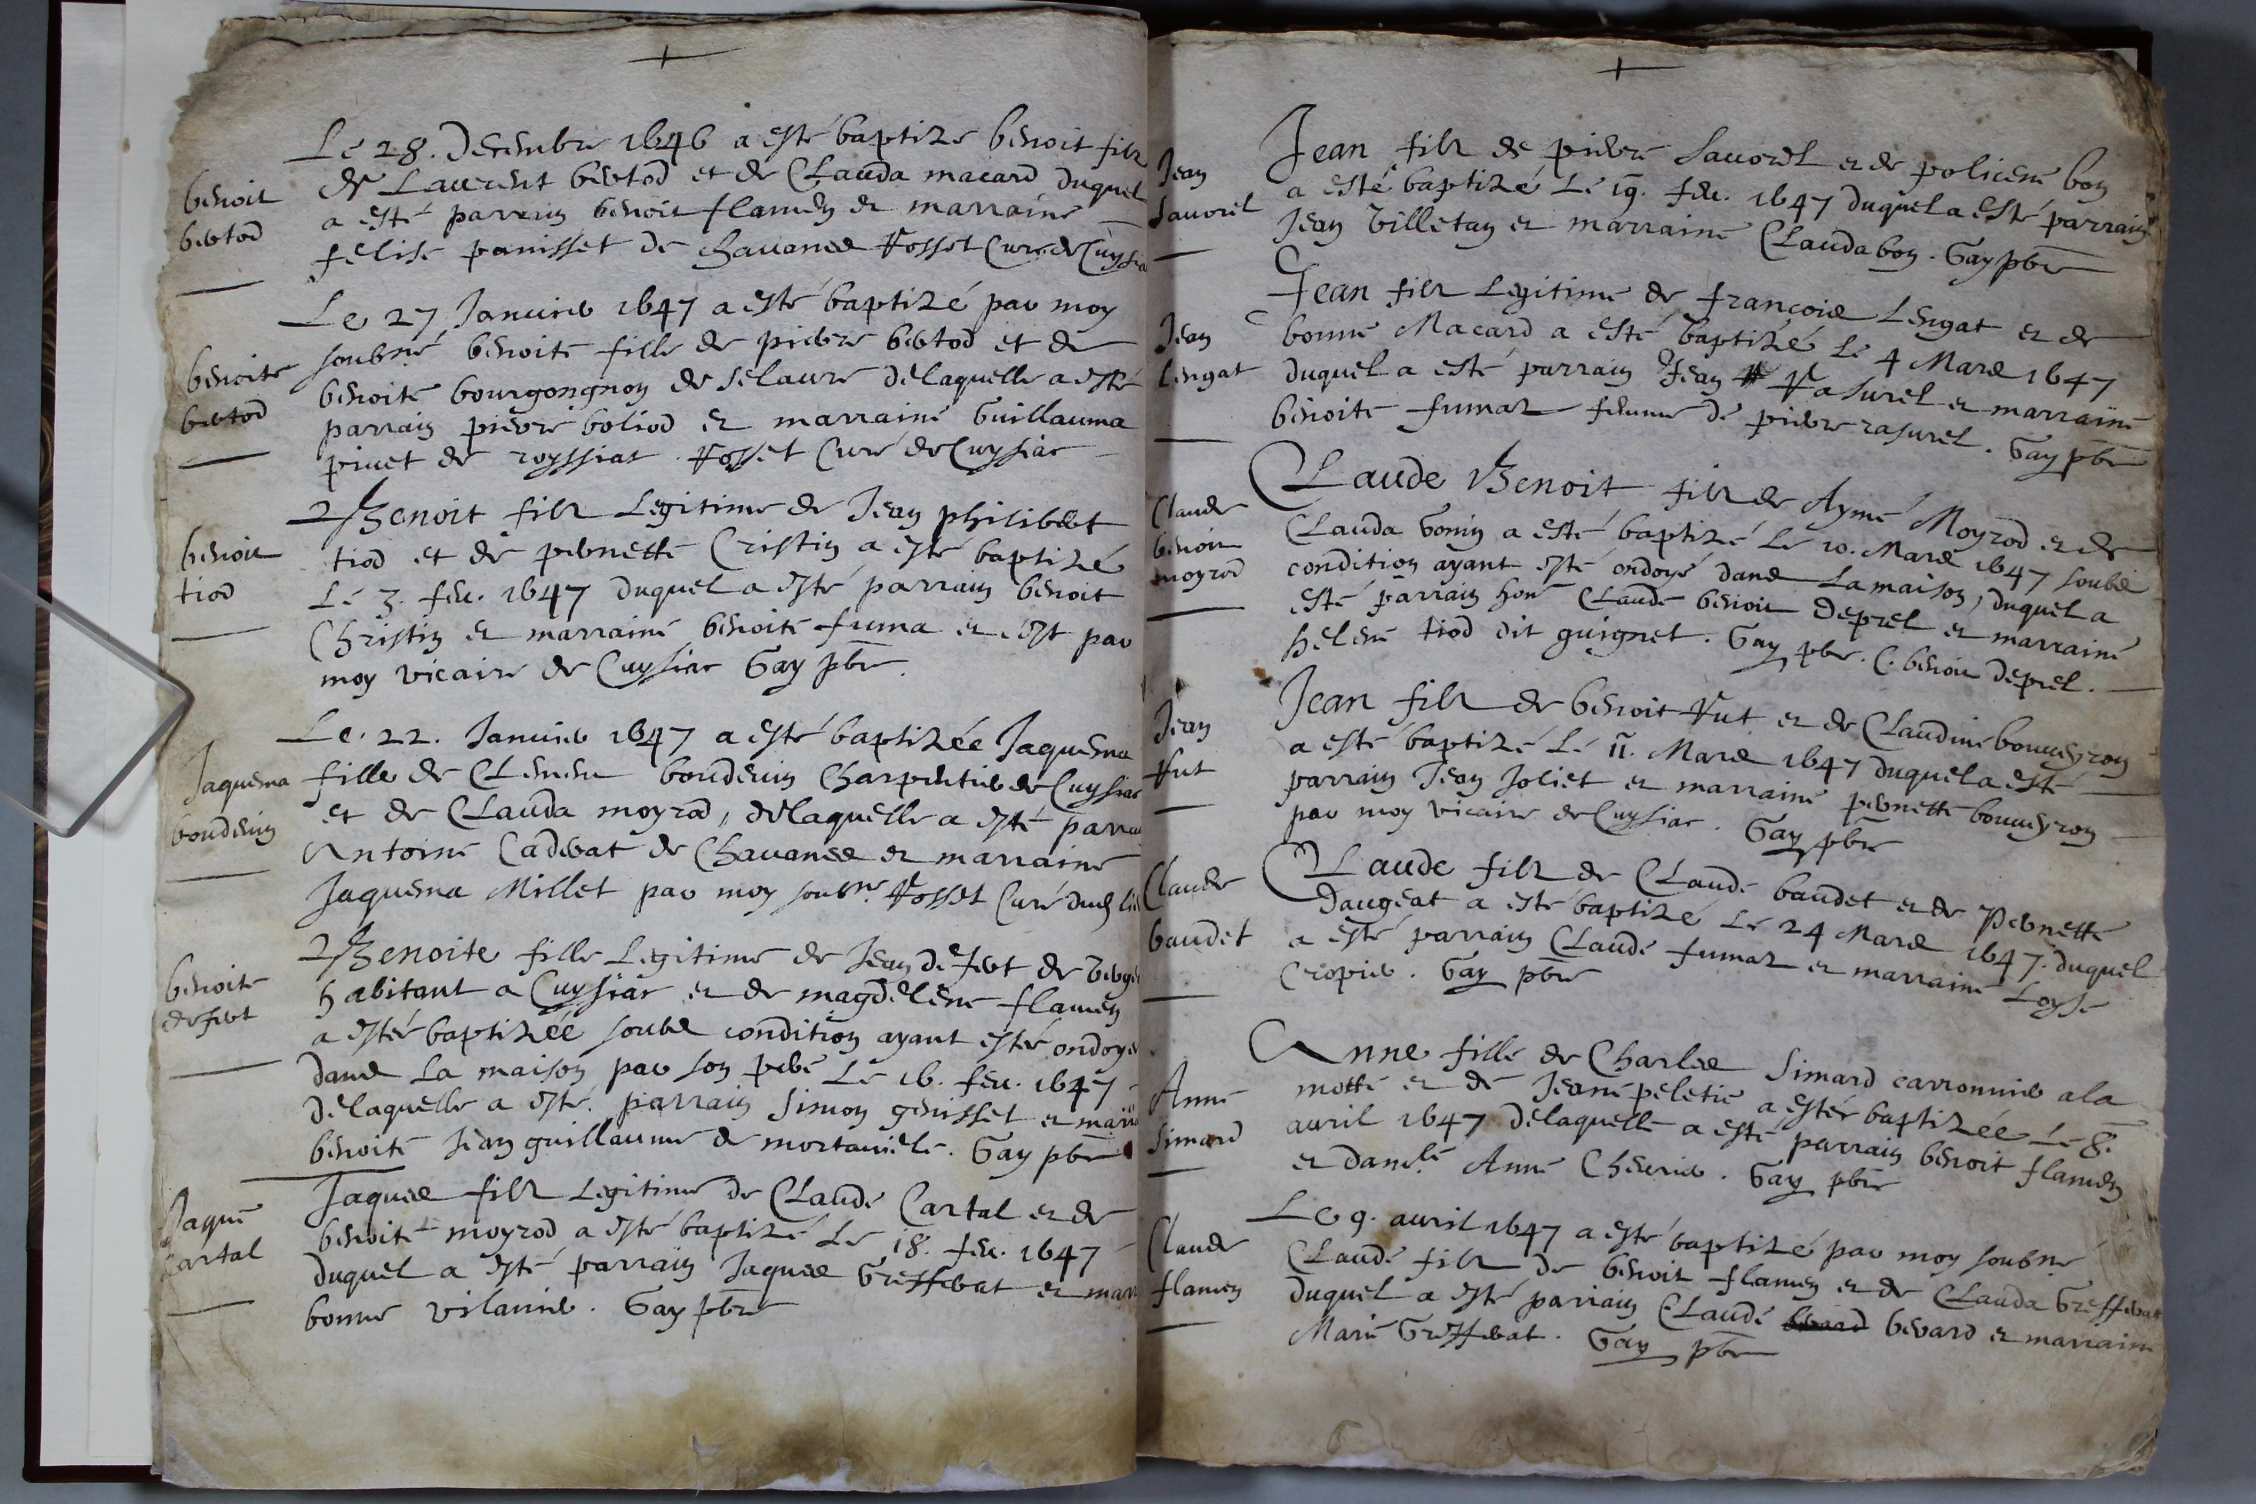 Le 28. Decembre 1646 a esté baptizé benoit filz
benoit
bertod
de Laurent bertod et de Clauda macard duquel
a esté parrain benoit flamen et marraine
felise panisset de chavanes Rosset Curé de Cuysia
Le 27 Janvier 1647 a esté baptizé par moy
benoite
bertod
soubné benoite fille de pierre bertod et de
benoite bourgongnon de selaure delaquelle a esté
parrain pierre boliod et marraine Guillauma
pivet de royssiat. Rosset Curé de Cuysiat
Benoit filz Legitime de Jean philibert
benoit
tiod
tiod et de pernette Cristin a esté baptizé
Le 3. fev. 1647 duquel a esté parrain benoit
Christin et marraine benoite fuma et c'est par
moy vicaire de Cuysiat Gay pbre.
Le 22. Janvier 1647 a esté baptizée Jaquema
Jaquema
boudevin
fille de Clement boudevin Charpentier de Cuysiat
et de Clauda moyrod, delaquelle a esté parra
Antoine Caderat de Chavanes et marraine
Jaquema Millet par moy soubné Rosset Curé dud li
Benoite fille Legitime de Jean defert de verge
benoite
defert
habitant a Cuysiat et de magdelene flamen
a estée baptizée soubs condition ayant estée ondoyée
dans La maison par son pere Le 16. fev. 1647
delaquelle a esté parrain Simon genisset et marr
benoite Jean guillaume de mortaviele. Gay pbre
Jaques filz Legitime de Claude Cartal et de
Jaque
Cartal
benoite moyrod a esté baptizé Le 18. fev. 1647
duquel a esté parrain Jaques Grefferat et marr
bonne vilanie. Gay pbre
Jean
Savorel
Jean filz de pierre Savorel et de police ne bon
a esté baptizé Le 19. fev. 1647 duquel a esté parrain
Jean Billetan et marraine Clauda bon. Gay pbre
Jean
Lengat
Jean filz Legitime de françois Lengat et de
bonne Macard a esté baptizé Le 4 Mars 1647
duquel a esté parrain Jean Rasurel et marraine
benoite fumaz femme de pierre rasurel. Gay pbre
Claude
benoit
moyrod
Claude Benoit filz de Aymé Moyrod et de
Clauda Gonin a esté baptizé Le 10. Mars 1647 soubs
condition ayant esté ondoyé dans La maison, duquel a
esté parrain hon Claude benoit Deprel et marraine
helene tiod dit guignet. Gay pbre. C. benoit Deprel.
Jean
Rut
Jean filz de benoit Rut et de Claudine bouveyron
a esté baptizé Le 11. Mars 1647 duquel a esté
parrain Jean Joliet et marraine pernette bouveyron
par moy vicaire de Cuysiat. Gay pbre
Claude
baudet
Claude filz de Claude baudet et de Pernette
Daugeat a esté baptizé Le 24 Mars 1647. duquel
a esté parrain Claude fumaz et marraine Loyse
Cropier. Gay pbre
Anne
Simard
Anne fille de Charles Simard carronnier a la
motte et de Jeane peletie a estée baptizée Le 8.
avril 1647 delaquelle a esté parrain benoit flamen
et damle Anne Chevrier. Gay pbre
Claude
flamen
Le 9. avril 1647 a esté baptizé par moy soubné
Claude filz de benoit flamen et de Clauda Greffera
duquel a esté parrain Claude berard et marraine
Marie Grefferat. Gay pbre